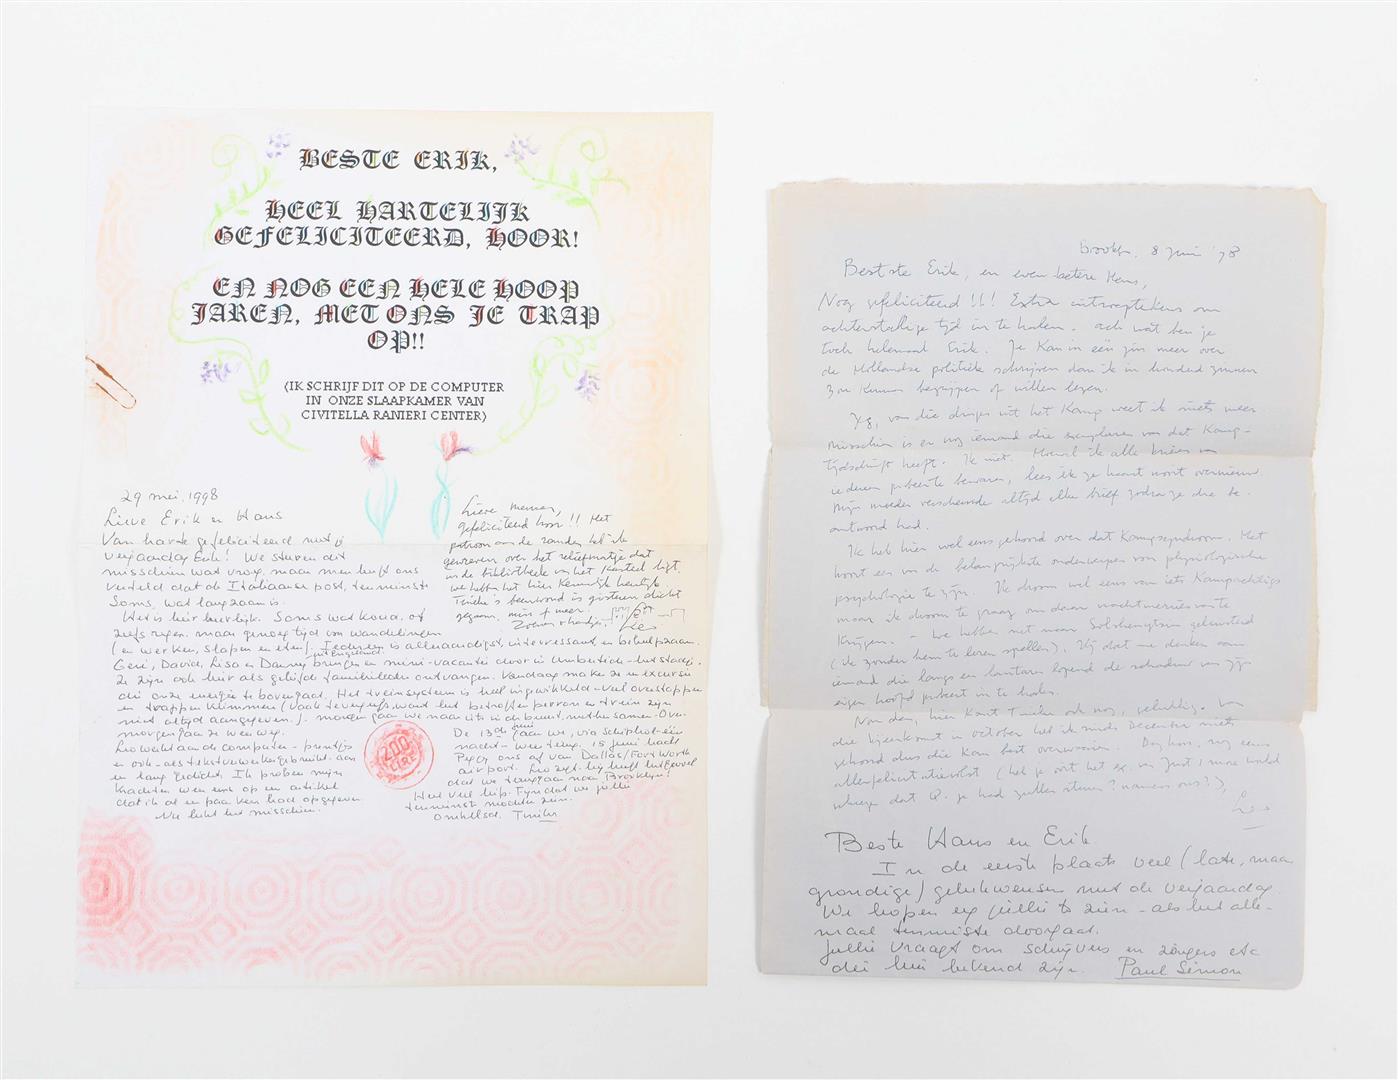 BESTE ERIK,
HEEL HARTELIJK
GEFELICITEERD, HOOR!
EN NOG EEN HELE HOOP
JAREN, MET ONS JE TRAP
OP!!
(IK SCHRIJF DIT OP DE COMPUTER
IN ONZE SLAAPKAMER VAN
CIVITELLA RANIERI CENTER)
29 mei, 1998
Lieve Erik en Hans
Van harte gefeliciteerd met je
verjaardag Erik! We sturen dit
misschien wat vroeg, maar men heeft ons
verteld dat de Italiaanse post, tenminste
soms, wat langzaam is.
Het is hier heerlijk. Soms wat koud, of
zelfs regen. maar genoeg tijd om wandelingen
(en werken, slapen en eten). Iedereen is allemachtigst, interessant en behulpzaam.
uit Engeland
Geri, David, Lisa en Danny brengen een mini-vacantie door in Umbertide - het stadje.
Ze zijn ook hier als geliefde familieleden ontvangen. Vandaag maken ze een excursie
die onze energie te boven gaat. Het treinsysteem is heel ingewikkeld - veel overstappen
en trappen klimmen (vaak tevergeefs, want het betroffen perron en trein zijn
niet altijd aangegeven.). morgen gaan we naar iets in de buurt, met he samen. Over-
morgen gaan ze weer weg.
Leo werkt aan de computer - prentjes
en ook - als tekstverwerker gebruikt - aan
een lang gedicht. Ik probeer mijn
krachten weer eens op een artikel
dat ik al een paar keer had opgegeven
Nu lukt het misschien.
Lieve mensen,
gefeliciteerd hoor!! Het
patroon aan de randen heb ik
gewreven over het reliefmatje dat
in de bibliotheek van het kasteel ligt.
We hebben het hier kennelijk heerlijk.
Tineke's beenwond is gisteren dicht
gegaan, min of meer.
Zoenen + handjes, Leo
200
LIRE
De 13de juni gaan we, via Schiphol - één
nacht - weer terug. 15 juni haalt
Peggy ons af van Dallas/Fort Worth
airport. Leo zegt hij heeft het gevoel
dat we teruggaan naar Brooklyn!
Heel veel liefs. Fijn dat we jullie
tenminste mochten zien.
Omhelsd. Tineke
8 juni '78
Beste Erik, en even betere Hans,
Nog gefeliciteerd!!! Extra uitroeptekens om
achterstallige tijd in te halen. Ach wat ben je
toch helemaal Erik. Je kan in één zin meer over
de Hollandse politiek schrijven dan ik in honderd zinnen
zou kunnen begrijpen of willen lezen.
Zeg, van die dingen uit het kamp weet ik niets meer
misschien is er nog iemand die exemplaren van dat kamp-
tijdschrift heeft. Ik niet. Hoewel ik alle brieven van
iedereen probeer te bewaren, lees ik ze haast nooit overnieuw.
Mijn moeder verscheurde altijd elke brief zodra ze die be-
antwoord had.
Ik heb hier wel eens gehoord over dat Kampsyndroom. Het
hoort een van de belangrijkste onderwerpen van physiologische
psychologie te zijn. Ik droom wel eens van iets kampachtigs
maar ik droom te graag om daar nachtmerries van te
krijgen. - We hebben net naar Solzhenytsin geluisterd
(ik zonder hem te leren spellen). Hij doet me denken aan
iemand die langs een lantaren lopend de schaduw van zijn
eigen hoofd probeert in te halen.
Nou dan, hier komt Tineke ook nog, gelukkig. Van
die bijeenkomst in october heb ik sinds December niets
gehoord dus die kan best overwaaien. Dag hoor, nog eens
allesfelicitatievolst
Leo
Beste Hans en Erik.
In de eerste plaats veel (late, maar
grondige) gelukwensen met de verjaardag.
We hopen erg jullie te zien - als het alle-
maal tenminste doorgaat.
Jullie vraagt om schrijvers en zangers etc
die hier bekend zijn. Paul Simon